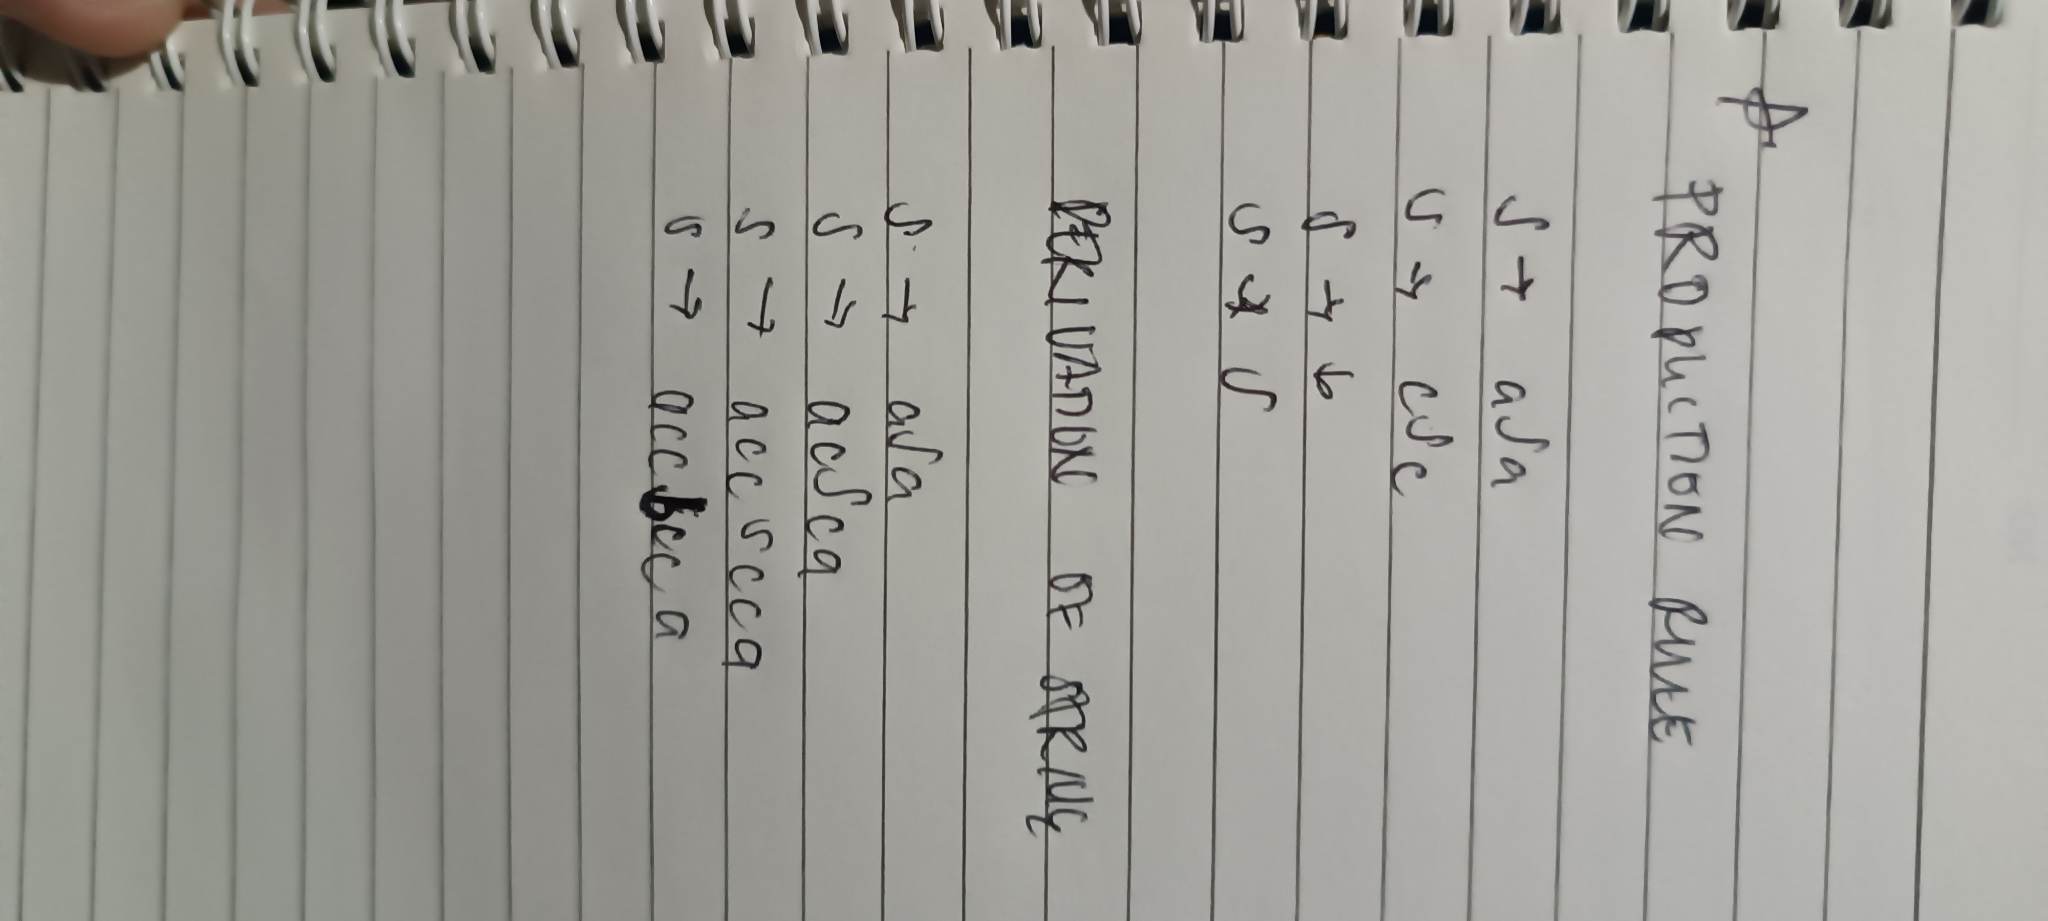 PRODUCTION RULE
S → aSa
S → cSc
S → b
S → S
DERIVATION OF STRING
S → aSa
S → acSca
S → accScca
S → accbcca